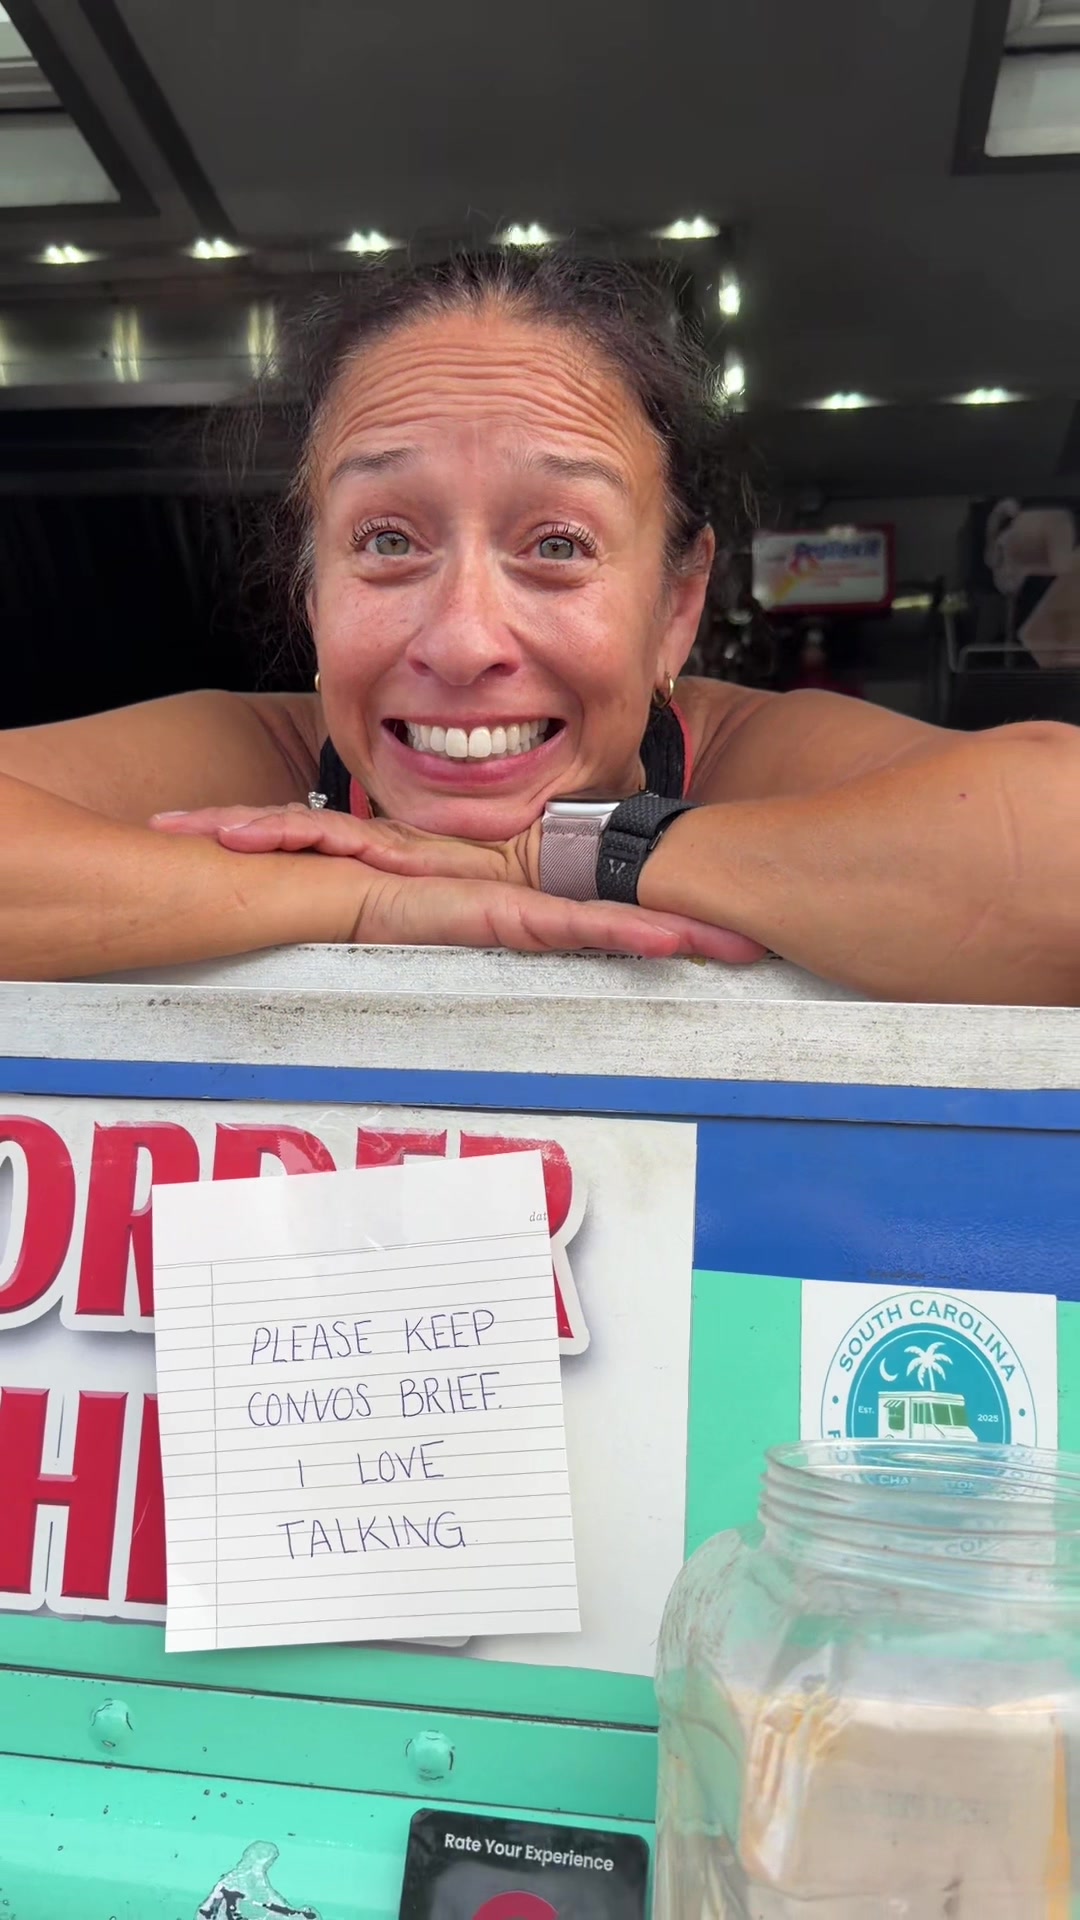 ORDER
date
PLEASE KEEP
CONVOS BRIEF.
I LOVE
TALKING
SOUTH CAROLINA
Est.
2025
Rate Your Experience